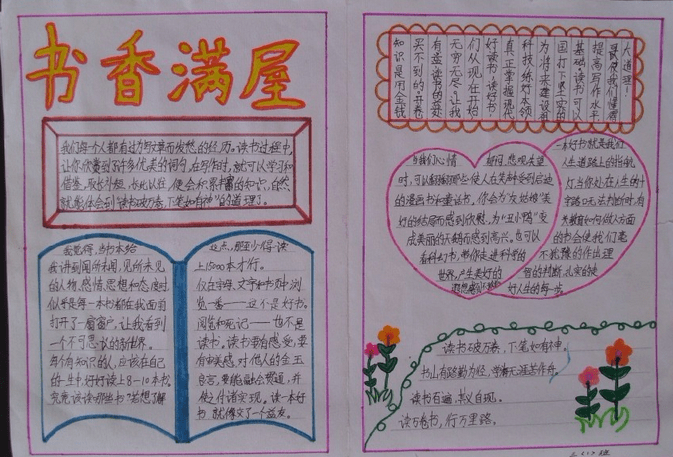 书香满屋
我们每个人都有过为写文章而发愁的经历。读书过程中,
让你欣赏到了许多优美的词句,在写作时,就可以学习和
借鉴,取长补短,长此以往,便会积累丰富的知识,自然
就能体会到"读书破万卷,下笔如有神"的道理了。
我觉得,当书本给
我讲到闻所未闻,见所未见
的人物、感情、思想和态度时
似乎是每一本书都在我面前
打开了一扇窗户,让我看到
一个不可思议的新世界。
每个有知识的人,应该在自己
的一生中,好好读上8-10本书,
究竟该读哪些书?若想了解
这点,那至少得读
上15000本才行。
仅在字母、文字和书页中浏
览一番——这不是好书。
阅览和死记——也不是
读书。读书要有感受,要
有审美感,对他人的金玉
良言,要能融会贯通,并
使之付诸实现。读一本好
书,就像交了一个益友。
知识是用金钱
买不到的。开卷
有益,读书的益处
无穷无尽。让我
们从现在开始
好读书,读好书!
真正掌握现代
科技、练好本领
为将来建设祖
国打下坚实的
基础。读书可以
提高写作水平
使我们懂得
大道理!
当我们心情郁闷、悲观失望
时,可以翻翻那些使人在笑声中受到启迪
的漫画书和童话书。你会为"灰姑娘"美
好的结局而感到欣慰,为"丑小鸭"变
成美丽的天鹅而感到高兴。也可以
看科幻书,带你走进科学的
世界,产生美好的
一本好书就是我们
人生道路上的指航
灯。当你处在人生的十
字路口无法判断时,有
关教育如何做人方面
的书会使我们毫
不犹豫的作出理
智的判断,扎实的走
好人生的每一步。
读书破万卷,下笔如有神。
书山有路勤为径,学海无涯苦作舟。
读书百遍,其义自现。
读万卷书,行万里路。